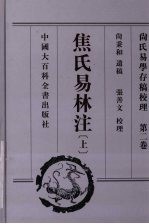 尚氏易學存稿校理 第二卷
尚秉和 遺稿
張善文 校理
焦氏易林注
〔上〕
中國大百科全書出版社